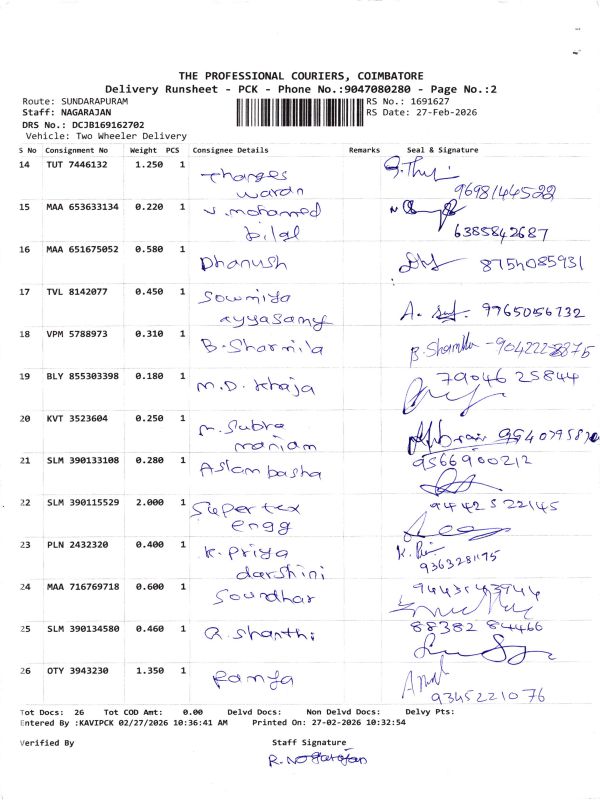 THE PROFESSIONAL COURIERS, COIMBATORE
Delivery Runsheet - PCK - Phone No.:9047080280 - Page No.:2
Route: SUNDARAPURAM RS No.: 1691627
Staff: NAGARAJAN RS Date: 27-Feb-2026
DRS No.: DCJB169162702
Vehicle: Two Wheeler Delivery
S No Consignment No Weight PCS Consignee Details Remarks Seal & Signature
14 TUT 7446132 1.250 1 Thanges
wardn 9698144522
15 MAA 653633134 0.220 1 v.mohamed
bilal 6385842687
16 MAA 651675052 0.580 1 Dhanush 8754085931
17 TVL 8142077 0.450 1 Sowmiya
ayyasamy A. 99765056732
18 VPM 5788973 0.310 1 B.Sharmila B. Sharmila -9042228875
19 BLY 855303398 0.180 1 M.D.Khaja 79046 25844
20 KVT 3523604 0.250 1 M.Subra
maniam
21 SLM 390133108 0.280 1 Aslambasha 9566900212
22 SLM 390115529 2.000 1 Supertex
engg 94425 22145
23 PLN 2432320 0.400 1 K.Priya K.
darshini
24 MAA 716769718 0.600 1 Soundhar
25 SLM 390134580 0.460 1 R.Shanthi 88382 84466
26 OTY 3943230 1.350 1 Ramya
9345221076
Tot Docs: 26 Tot COD Amt: 0.00 Delvd Docs: Non Delvd Docs: Delvy Pts:
Entered By :KAVIPCK 02/27/2026 10:36:41 AM Printed On: 27-02-2026 10:32:54
Verified By Staff Signature
R.Nagarajan